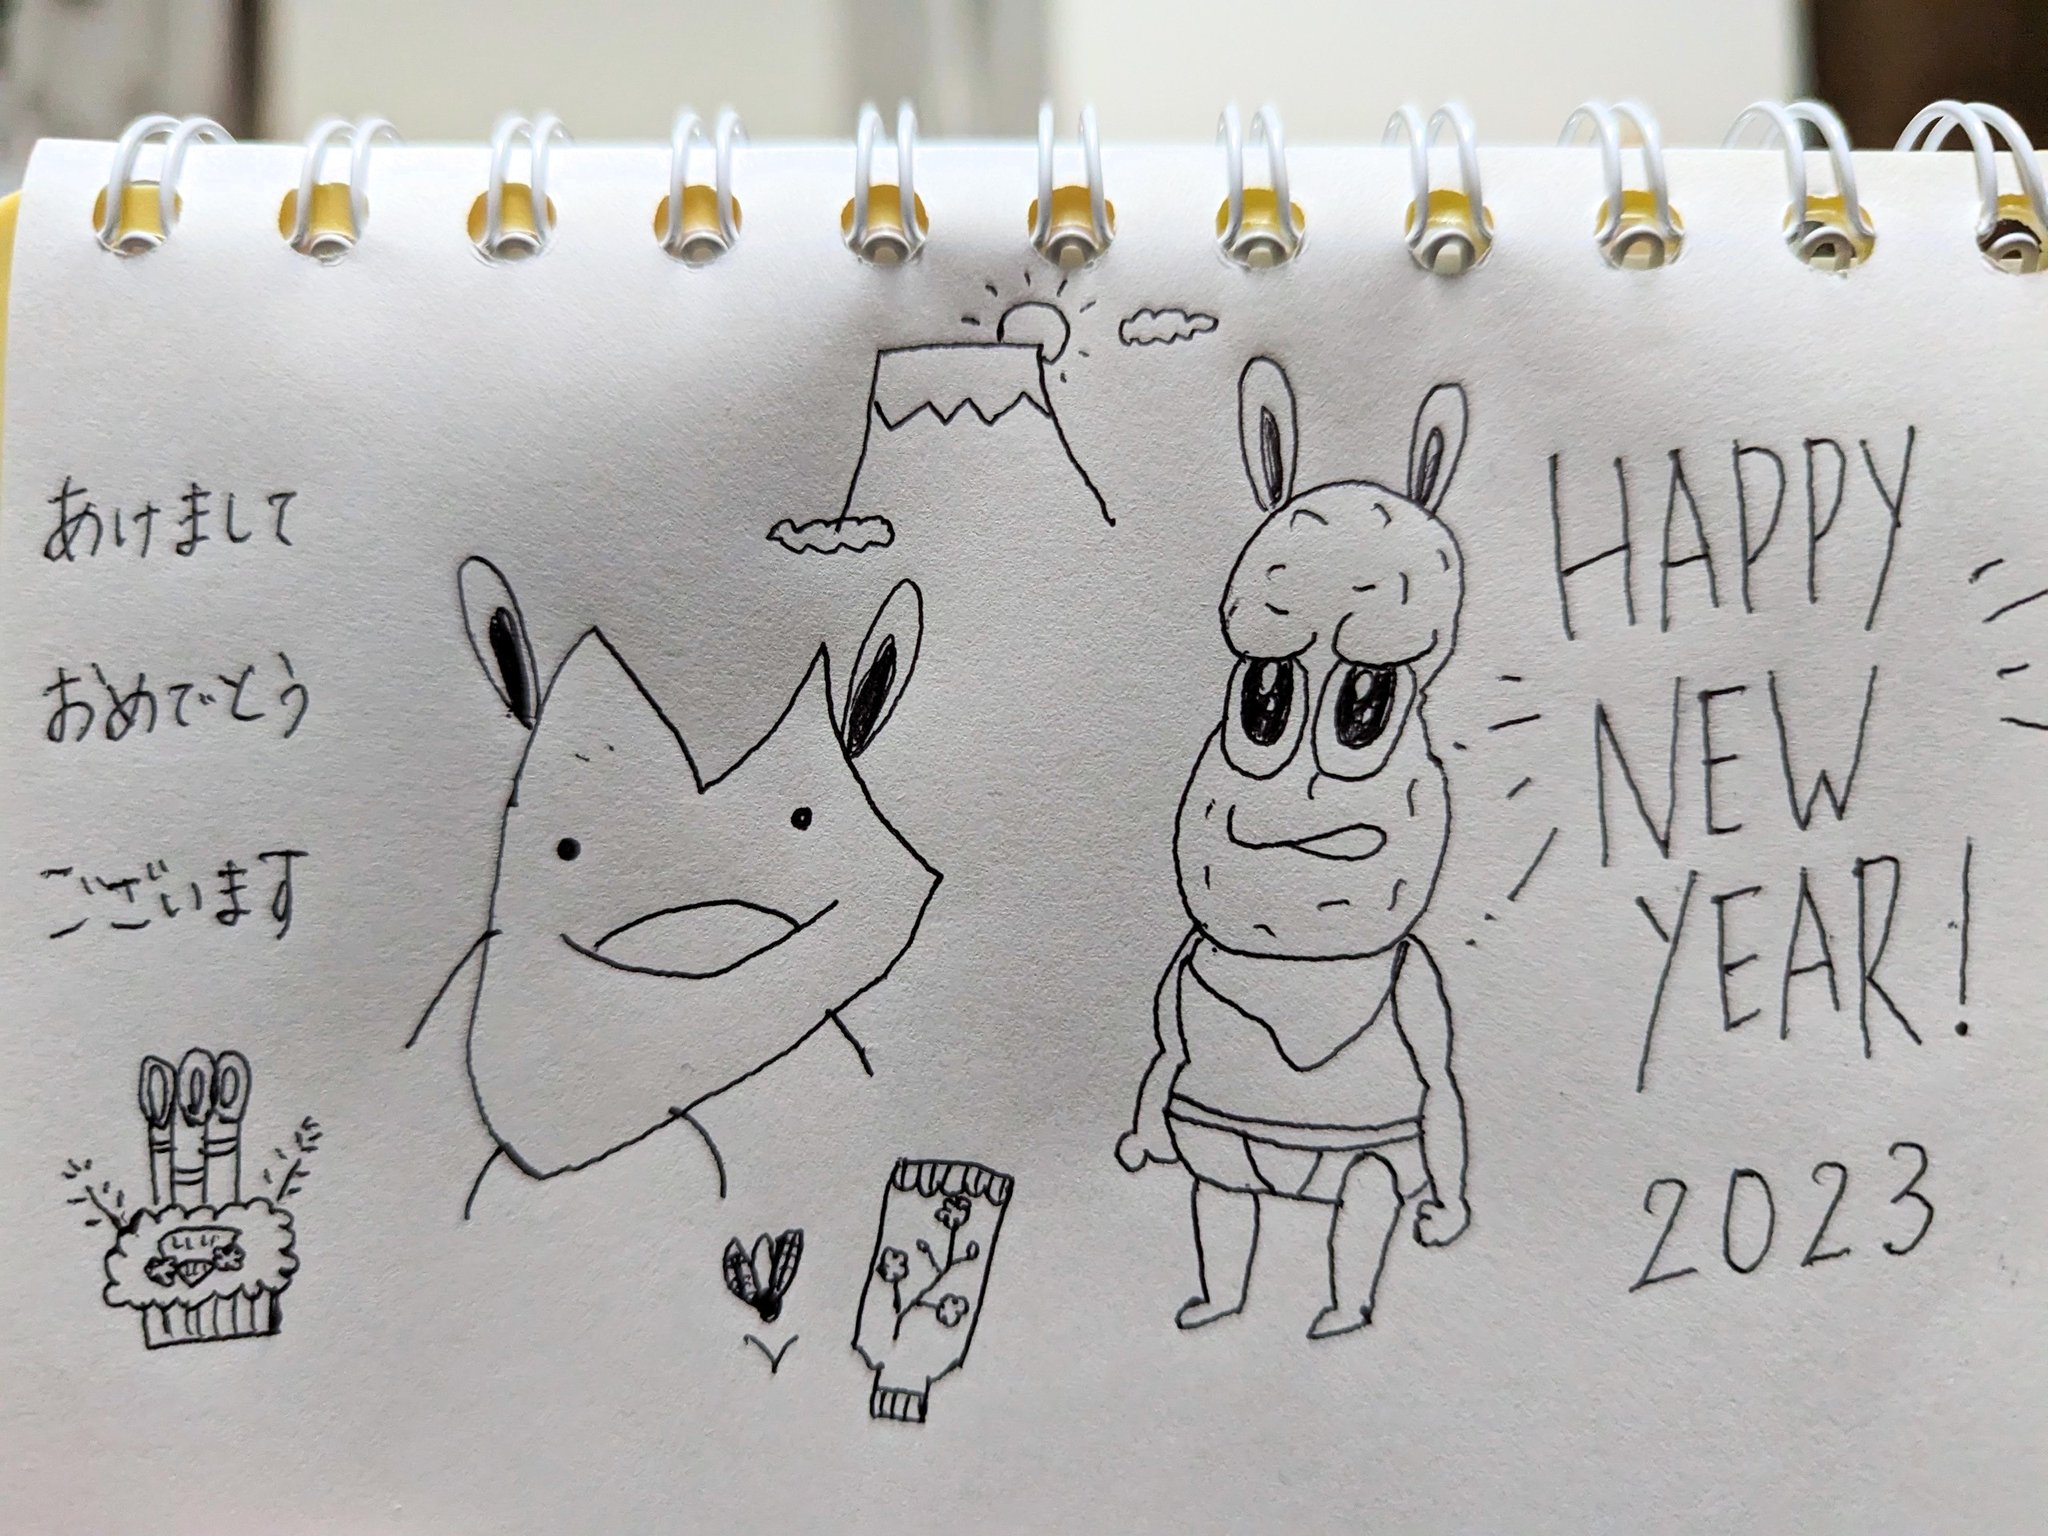 あけまして
おめでとう
ございます
HAPPY
NEW
YEAR!
2023